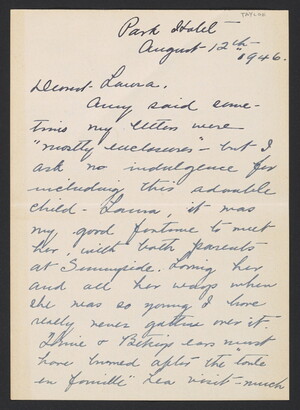 TAYLOR
Park Hotel
August 12th
1946.
Dearest Laura,
Amy said some-
times my letters were
"mostly enclosures" - but I
ask no indulgence for
including this adorable
child - Laura, it was
my good fortune to meet
her, with both parents
at Sunnyside. Loving her
and all her ways when
she was so young I have
really never gotten over it.
& Betsey's ears must
have burned after the "toute
en famille" tea visit - much